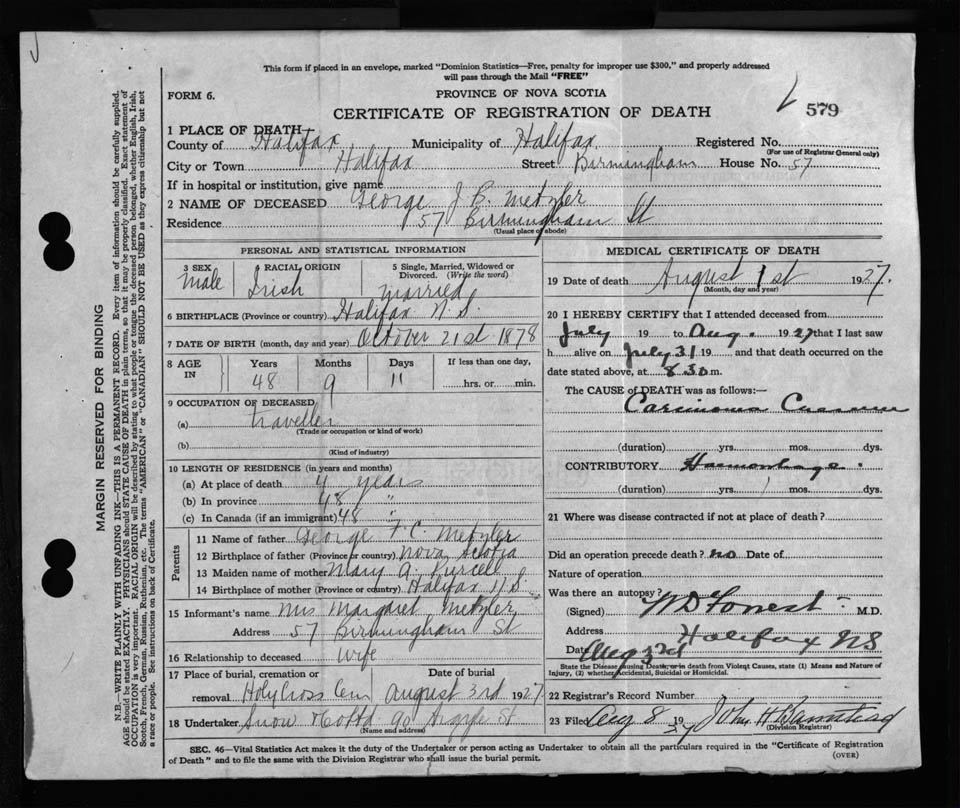 This form if placed in an envelope, marked "Dominion Statistics—Free, penalty for improper use $300," and properly addressed
will pass through the Mail "FREE"
FORM 6.
PROVINCE OF NOVA SCOTIA
CERTIFICATE OF REGISTRATION OF DEATH
579
1 PLACE OF DEATH
County of Halifax Municipality of Halifax Registered No.
(For use of Registrar General only)
City or Town Halifax Street Birmingham House No. 57
If in hospital or institution, give name
2 NAME OF DECEASED George J. B. Metzler
Residence 57 Birmingham St
(Usual place of abode)
PERSONAL AND STATISTICAL INFORMATION
3 SEX Male
4 RACIAL ORIGIN Irish
5 Single, Married, Widowed or Divorced. (Write the word) married
6 BIRTHPLACE (Province or country) Halifax N.S.
7 DATE OF BIRTH (month, day and year) October 21st 1878
8 AGE IN Years 48 Months 9 Days 11 If less than one day, hrs. or min.
9 OCCUPATION OF DECEASED
(a) traveller
(Trade or occupation or kind of work)
(b)
(Kind of industry)
10 LENGTH OF RESIDENCE (in years and months)
(a) At place of death 4 years
(b) In province 48 "
(c) In Canada (if an immigrant) 48 "
Parents
11 Name of father George F. C. Metzler
12 Birthplace of father (Province or country) Nova Scotia
13 Maiden name of mother Mary A. Purcell
14 Birthplace of mother (Province or country) Halifax N.S.
15 Informant's name Mrs Margaret Metzler
Address 57 Birmingham St
16 Relationship to deceased Wife
17 Place of burial, cremation or removal Holy Cross Cem
Date of burial August 3rd 1927
18 Undertaker Snow & Co Ltd 90 Argyle St
(Name and address)
MEDICAL CERTIFICATE OF DEATH
19 Date of death August 1st 1927.
(Month, day and year)
20 I HEREBY CERTIFY that I attended deceased from
July 19 to Aug. 1927 that I last saw
h alive on July 31 19 and that death occurred on the
date stated above, at 8.30 m.
The CAUSE of DEATH was as follows:—
Carcinoma
(duration) yrs. mos. dys.
CONTRIBUTORY Haemorrhage.
(duration) yrs. mos. dys.
21 Where was disease contracted if not at place of death?
Did an operation precede death? no Date of
Nature of operation
Was there an autopsy?
(Signed) W D Forrest M.D.
Address Halifax NS
Date Aug 3rd
State the Disease causing Death, or in death from Violent Causes, state (1) Means and Nature of
Injury, (2) whether Accidental, Suicidal or Homicidal.
22 Registrar's Record Number
23 Filed Aug 8 1927 John H Barnstead
(Division Registrar)
SEC. 46—Vital Statistics Act makes it the duty of the Undertaker or person acting as Undertaker to obtain all the particulars required in the "Certificate of Registration
of Death" and to file the same with the Division Registrar who shall issue the burial permit.
(OVER)
MARGIN RESERVED FOR BINDING
N.B.—WRITE PLAINLY WITH UNFADING INK—THIS IS A PERMANENT RECORD. Every item of information should be carefully supplied.
AGE should be stated EXACTLY. PHYSICIANS should STATE CAUSE OF DEATH in plain terms, so that it may be properly classified. Exact statement of
OCCUPATION is very important. RACIAL ORIGIN will be described by stating to what people or tongue the deceased person belonged, whether English, Irish,
Scotch, French, German, Russian, Ruthenian, etc. The terms "AMERICAN" or "CANADIAN" SHOULD NOT BE USED as they express citizenship but not
a race or people. See instructions on back of Certificate.